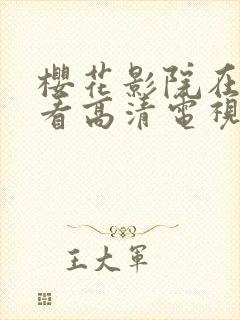 櫻花影院在
看高清電視
王大軍